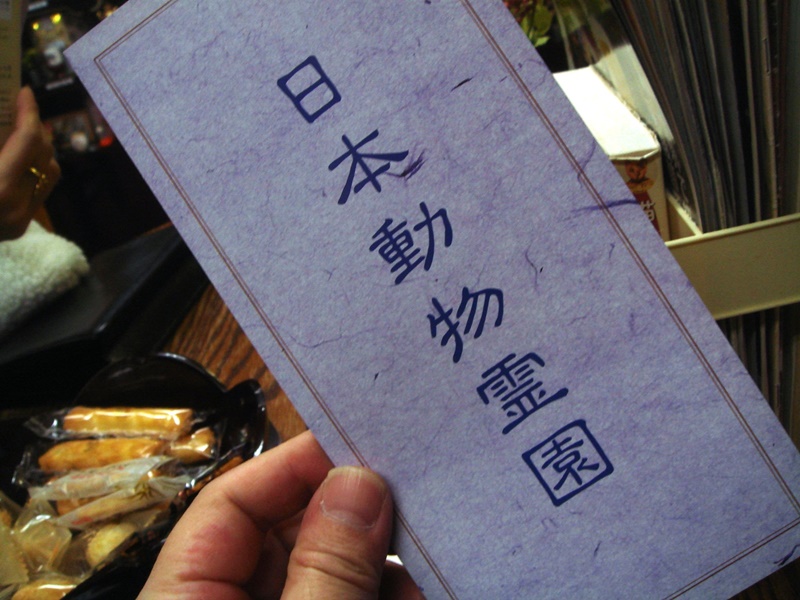 日本動物霊園